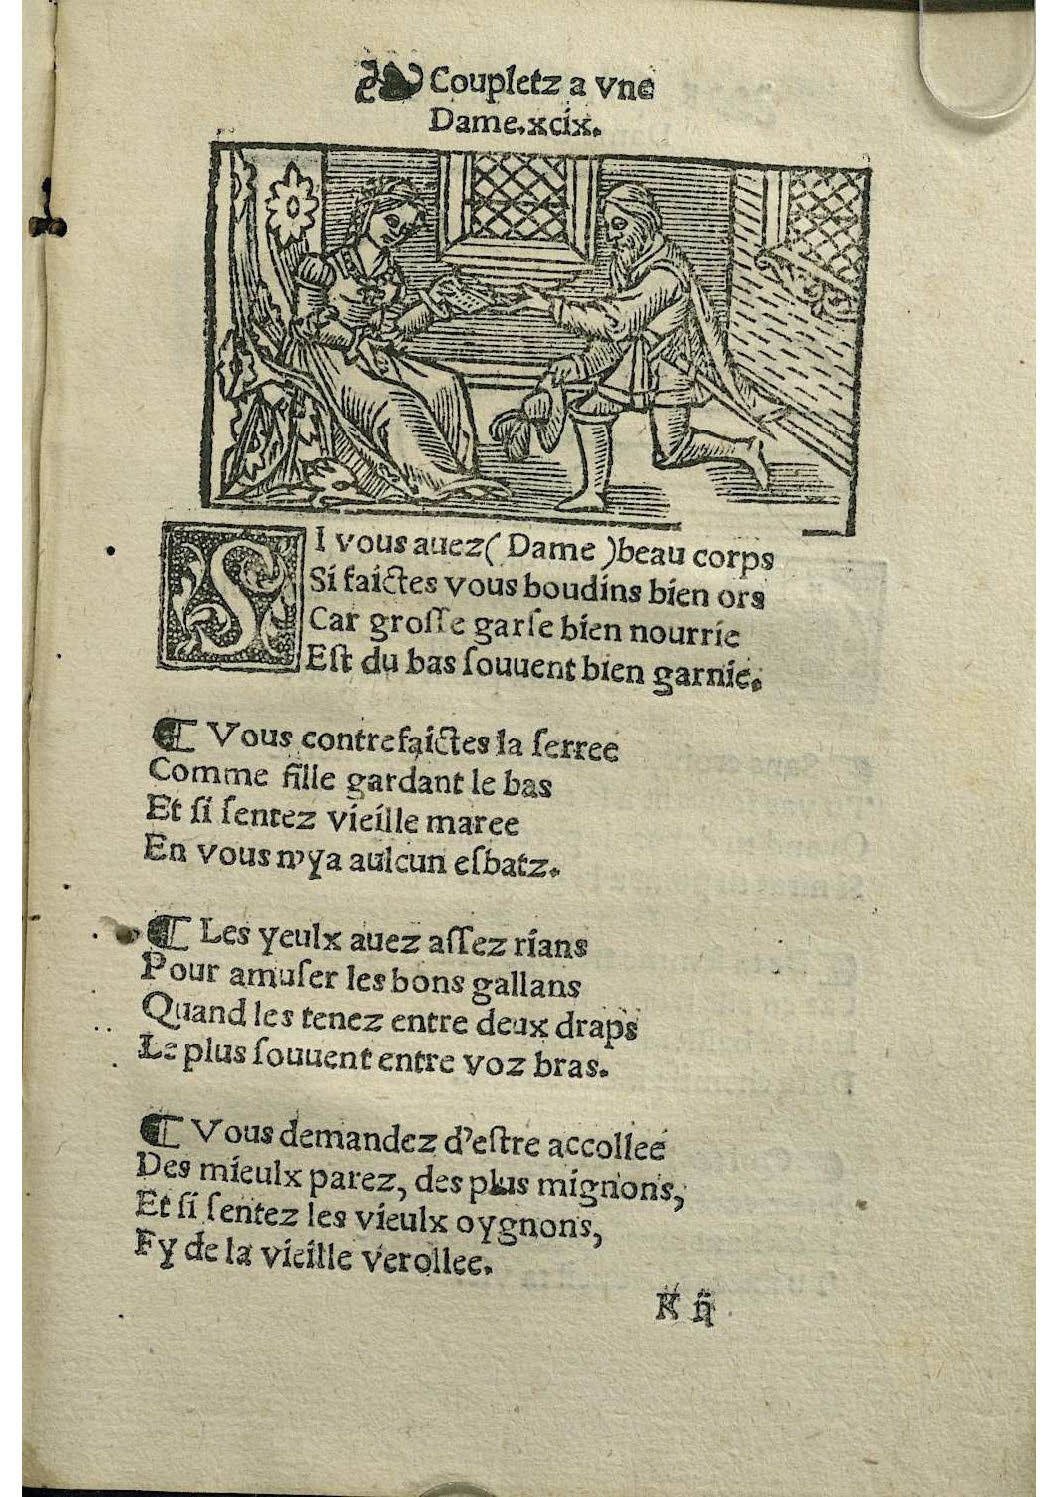 Coupletz a vne
Dame.xcix.
SI vous auez( Dame )beau corps
Si faictes vous boudins bien ors
Car groſſe garſe bien nourrie
Eſt du bas ſouuent bien garnie.
¶ Vous contrefaictes la ſerree
Comme fille gardant le bas
Et ſi ſentez vieille maree
En vous n'ya aulcun eſbatz.
¶ Les yeulx auez aſſez rians
Pour amuſer les bons gallans
Quand les tenez entre deux draps
Le plus ſouuent entre voz bras.
¶ Vous demandez d'eſtre accollee
Des mieulx parez, des plus mignons,
Et ſi ſentez les vieulx oygnons,
Fy de la vieille verollee.
K ij